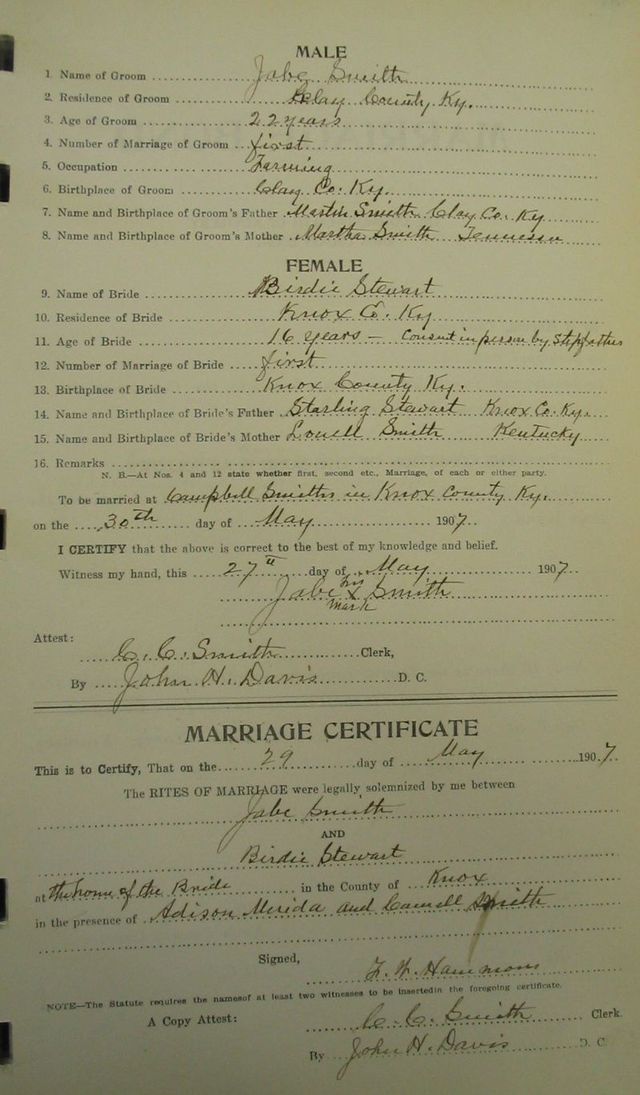 MALE
1. Name of Groom Jabe Smith
2. Residence of Groom Clay County Ky.
3. Age of Groom 22 years
4. Number of Marriage of Groom first
5. Occupation Farming
6. Birthplace of Groom Clay Co. Ky.
7. Name and Birthplace of Groom's Father Martin Smith Clay Co. Ky
8. Name and Birthplace of Groom's Mother Martha Smith Tennessee
FEMALE
9. Name of Bride Birdie Stewart
10. Residence of Bride Knox Co. Ky
11. Age of Bride 16 years — Consent in person by Stepfather
12. Number of Marriage of Bride first
13. Birthplace of Bride Knox County Ky.
14. Name and Birthplace of Bride's Father Starling Stewart Knox Co. Ky.
15. Name and Birthplace of Bride's Mother Smith Kentucky
16. Remarks
N. B.—At Nos. 4 and 12 state whether first, second etc., Marriage, of each or either party.
To be married at Campbell Smiths in Knox County Ky.
on the 30th day of May 1907
I CERTIFY that the above is correct to the best of my knowledge and belief.
Witness my hand, this 27" day of May 1907
his
Jabe x Smith
mark
Attest:
C. C. Smith Clerk,
By John H. Davis D. C.
MARRIAGE CERTIFICATE
This is to Certify, That on the 29 day of May 1907
The RITES OF MARRIAGE were legally solemnized by me between
Jabe Smith
AND
Birdie Stewart
at the home of the Bride in the County of Knox
in the presence of Adison Merida and Smith
Signed,
Hammons
NOTE—The Statute requires the namesof at least two witnesses to be insertedin the foregoing certificate.
A Copy Attest: C. C. Smith Clerk
By John H. Davis D. C